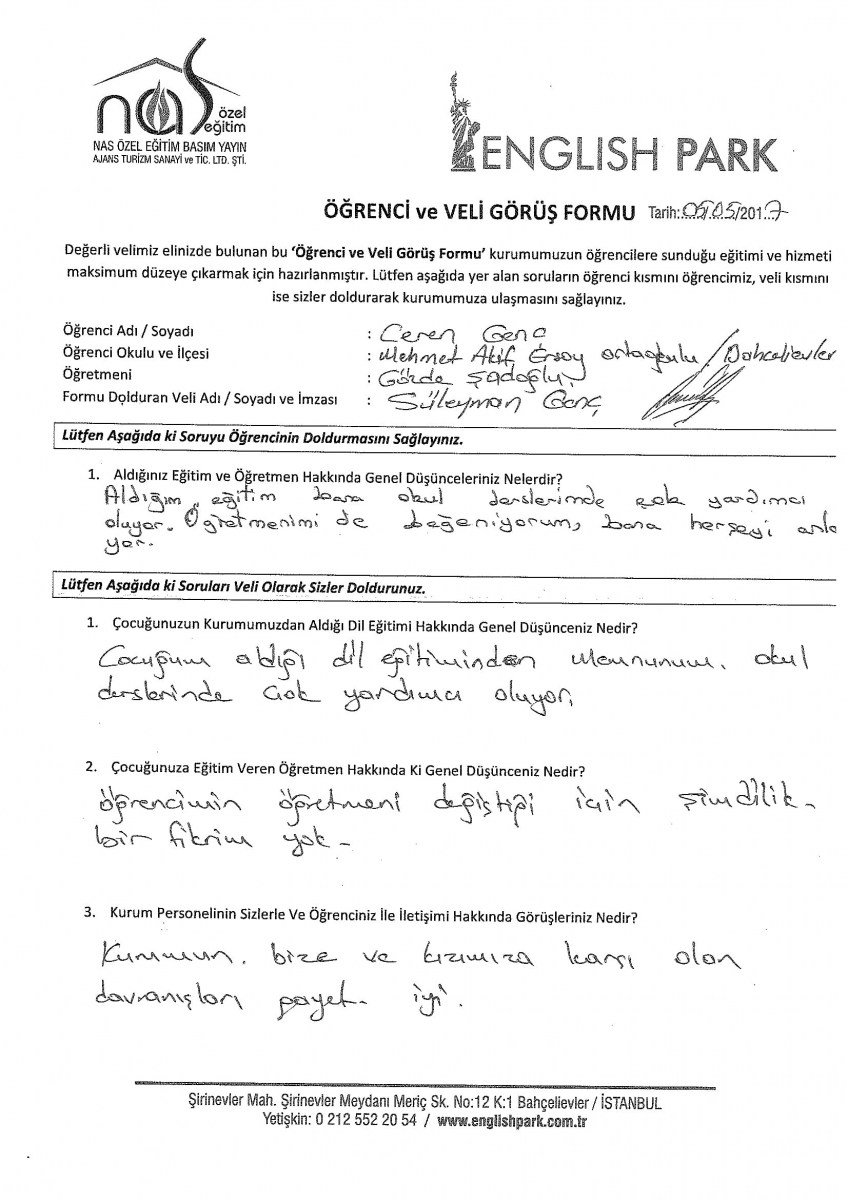 nas özel eğitim
NAS ÖZEL EĞİTİM BASIM YAYIN
AJANS TURİZM SANAYİ ve TİC. LTD. ŞTİ.
ENGLISH PARK
ÖĞRENCİ ve VELİ GÖRÜŞ FORMU Tarih:05/05/2017
Değerli velimiz elinizde bulunan bu 'Öğrenci ve Veli Görüş Formu' kurumumuzun öğrencilere sunduğu eğitimi ve hizmeti
maksimum düzeye çıkarmak için hazırlanmıştır. Lütfen aşağıda yer alan soruların öğrenci kısmını öğrencimiz, veli kısmını
ise sizler doldurarak kurumumuza ulaşmasını sağlayınız.
Öğrenci Adı / Soyadı : Ceren Genc
Öğrenci Okulu ve İlçesi : Mehmet Akif Ersoy ortaokulu / Bahcelievler
Öğretmeni : Gözde Şadoğlu
Formu Dolduran Veli Adı / Soyadı ve İmzası : Süleyman Genç
Lütfen Aşağıda ki Soruyu Öğrencinin Doldurmasını Sağlayınız.
1. Aldığınız Eğitim ve Öğretmen Hakkında Genel Düşünceleriniz Nelerdir?
Aldığım eğitim bana okul derslerimde çok yardımcı
oluyor. Öğretmenimi de beğeniyorum, bana herşeyi anla
yor.
Lütfen Aşağıda ki Soruları Veli Olarak Sizler Doldurunuz.
1. Çocuğunuzun Kurumumuzdan Aldığı Dil Eğitimi Hakkında Genel Düşünceniz Nedir?
Cocuğum aldığı dil eğitiminden memnunum. okul
derslerinde cok yardımcı oluyor.
2. Çocuğunuza Eğitim Veren Öğretmen Hakkında Ki Genel Düşünceniz Nedir?
öğrencimin öğretmeni değiştiği için şimdilik-
bir fikrim yok-
3. Kurum Personelinin Sizlerle Ve Öğrenciniz İle İletişimi Hakkında Görüşleriniz Nedir?
Kurumun. bize ve kızımıza karşı olan
davranışları gayet- iyi.
Şirinevler Mah. Şirinevler Meydanı Meriç Sk. No:12 K:1 Bahçelievler / İSTANBUL
Yetişkin: 0 212 552 20 54 / www.englishpark.com.tr